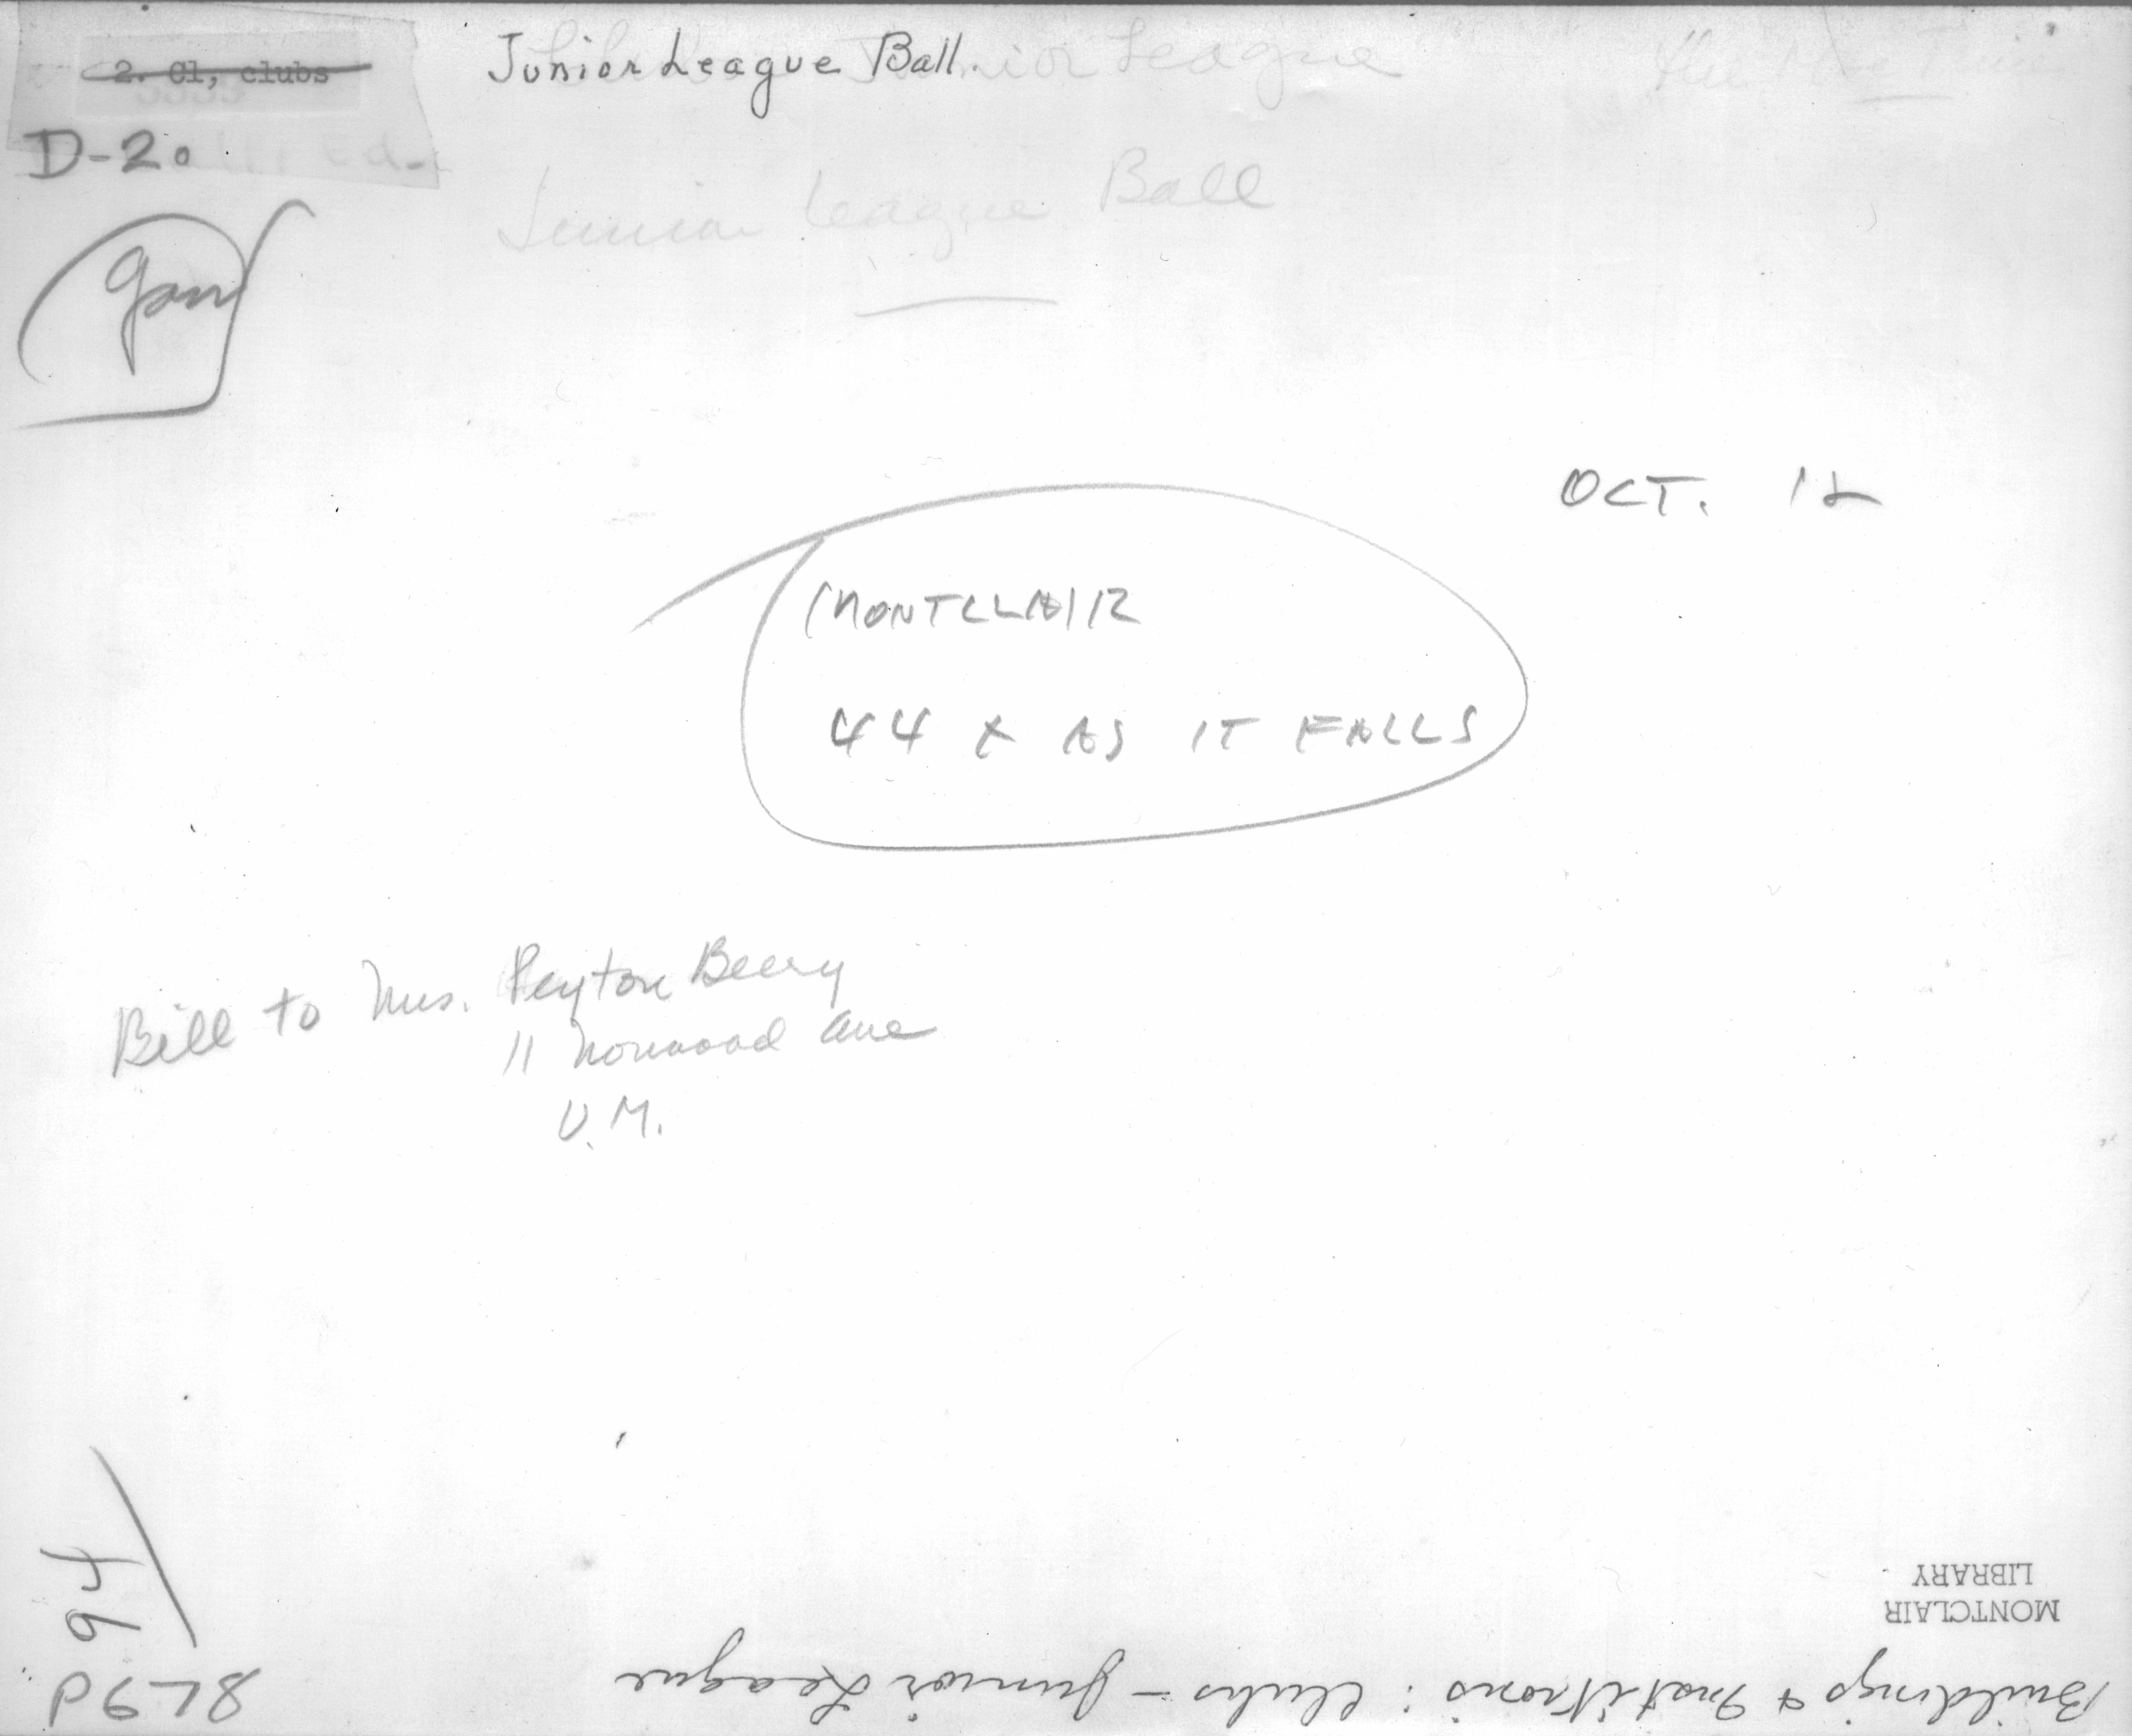 2. Cl, clubs
Junior League Ball.
Junior League
D-20
Junior League Ball
OCT. 12
MONTCLAIR
44 x AS IT FALLS
Bill to Mrs. Peyton Beery
11 Norwood Ave
U.M.
94
P6578
MONTCLAIR
LIBRARY
Buildings & Institions: Clubs - Junior League